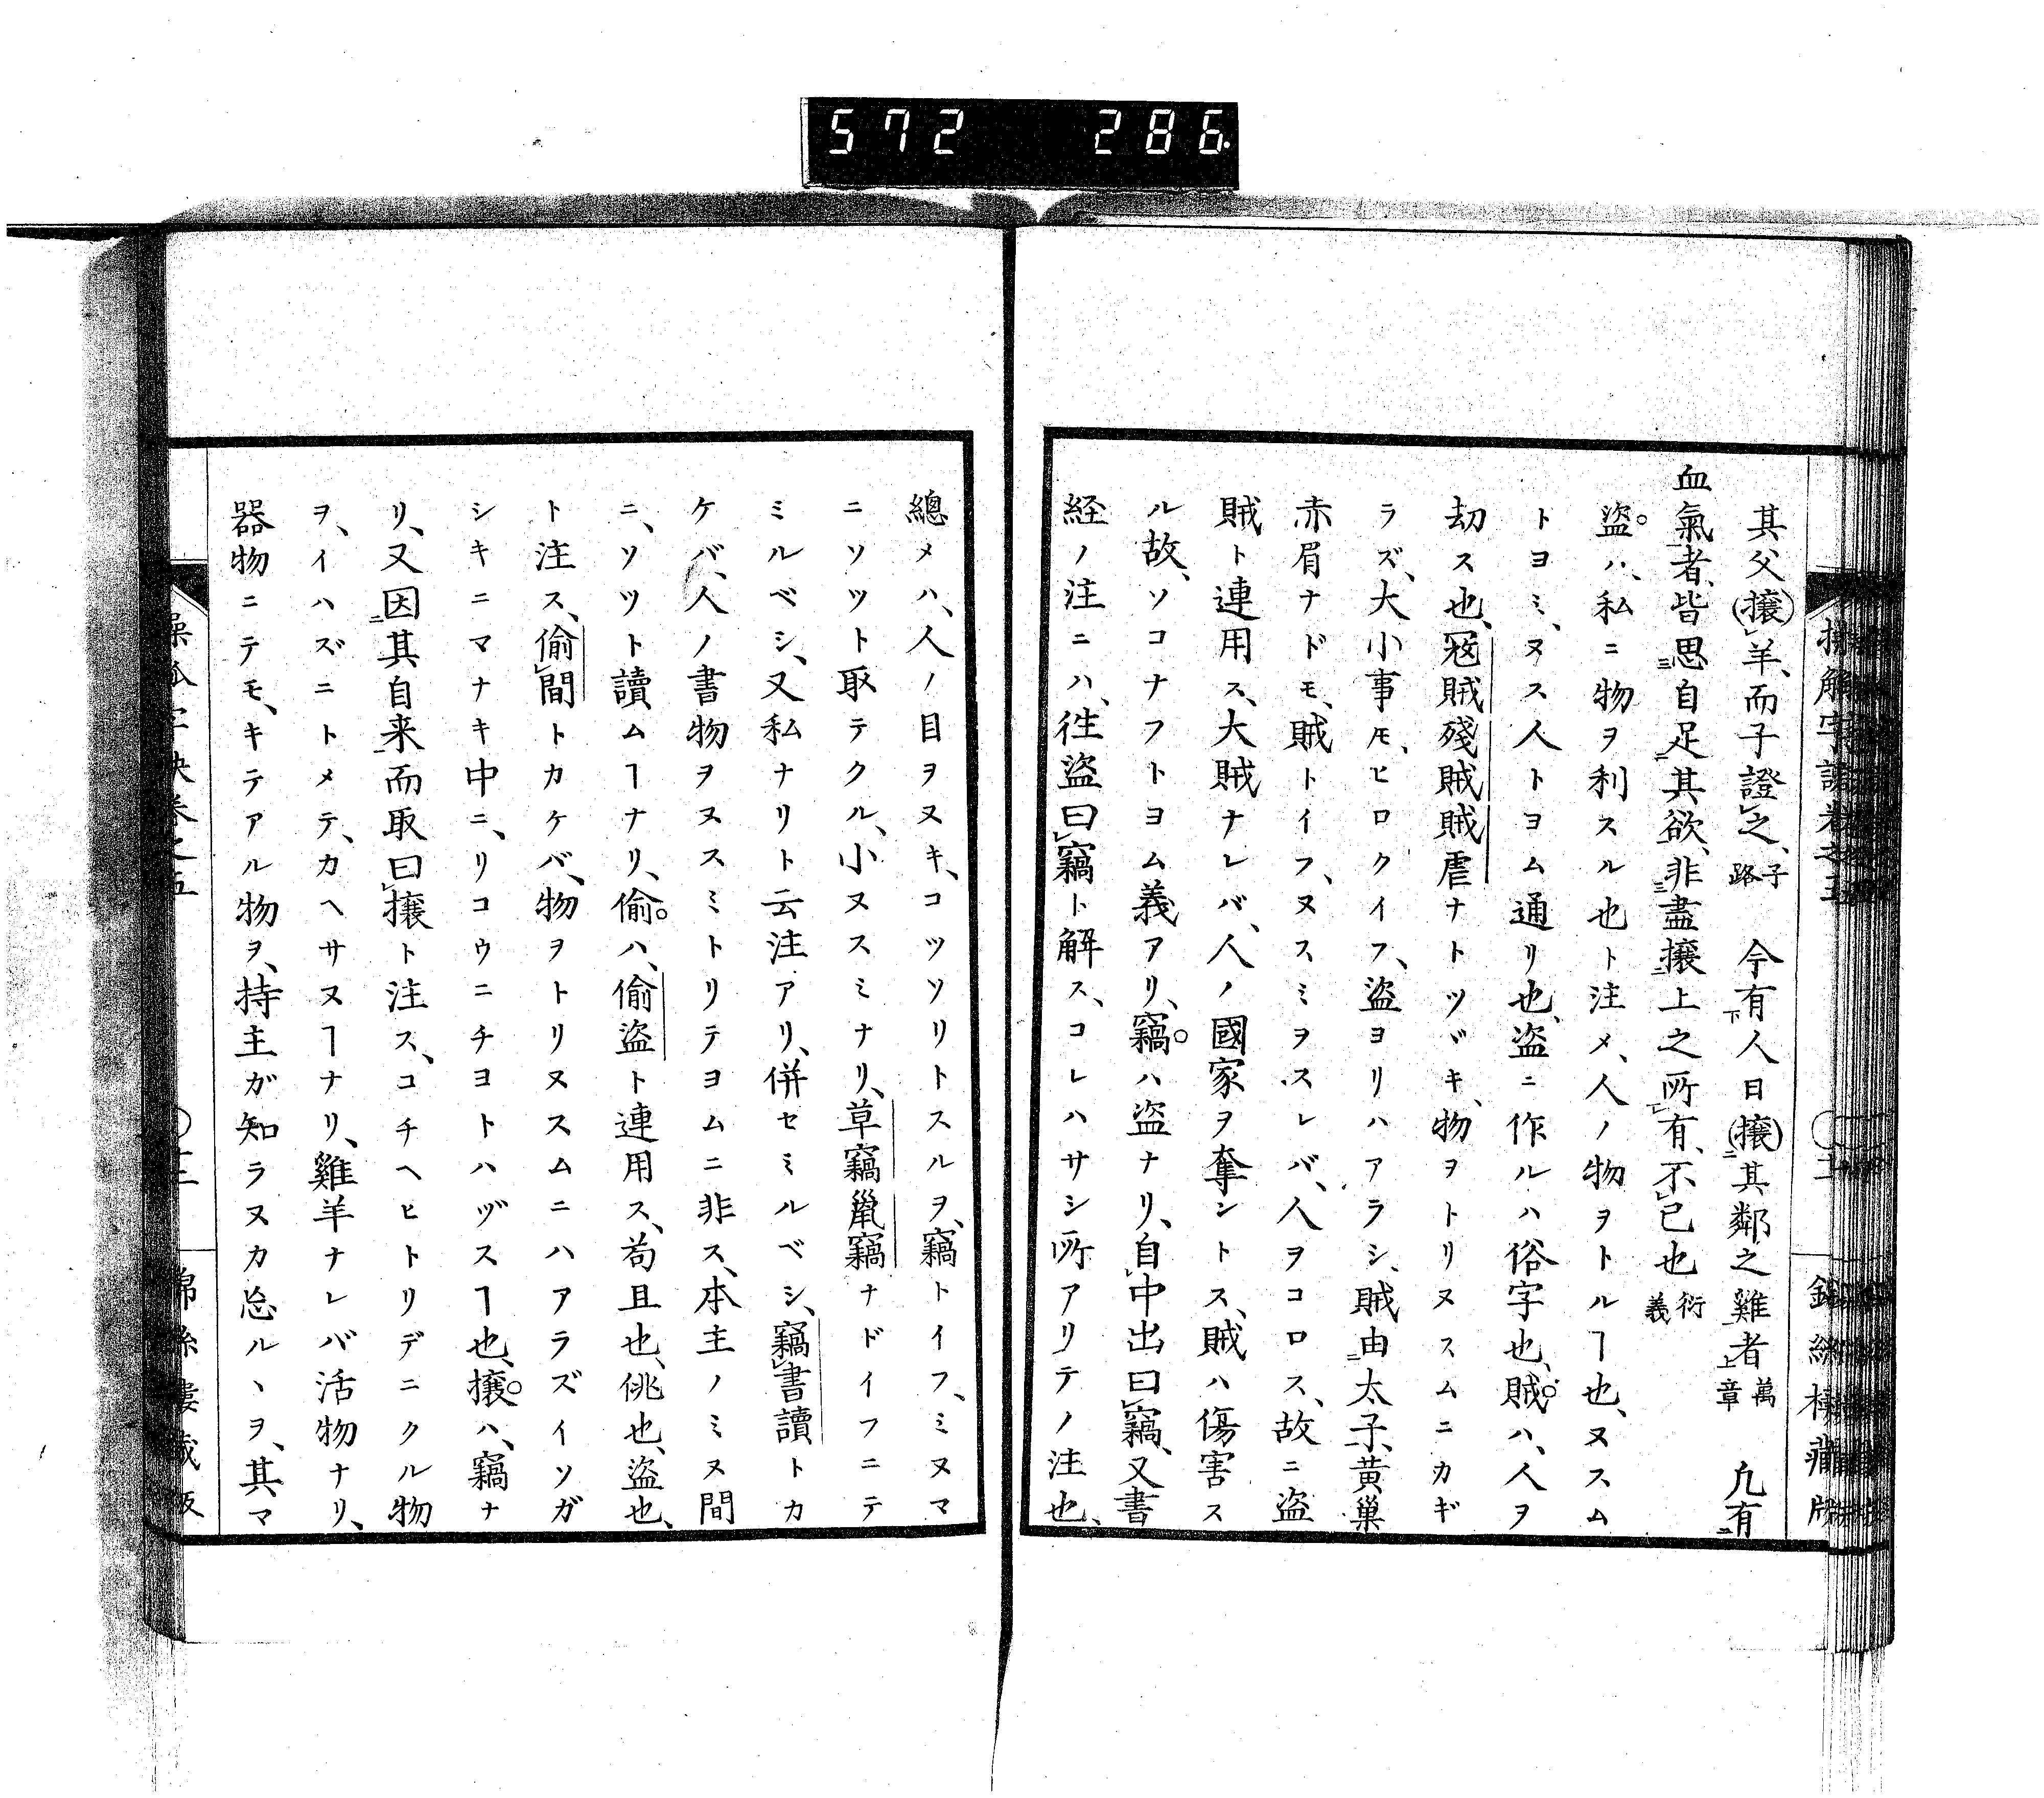 572 286
其父攘羊、而子證之、子路 今有人日攘其鄰之雞者萬章 凡有
血氣者、皆思自足其欲、非盡攘上之所有、不已也衍義
盜ハ、私ニ物ヲ利スル也ト注メ、人ノ物ヲトルヿ也、ヌスム
トヨミ、ヌス人トヨム通リ也、盗ニ作ルハ俗字也、賊ハ、人ヲ
劫ス也、寇賊殘賊賊虐ナトツヾキ、物ヲトリヌスムニカギ
ラズ、大小事モ、ヒロクイフ、盗ヨリハアラシ、賊由太子、黄巣
赤眉ナドモ、賊トイフ、ヌスミヲスレバ、人ヲコロス、故ニ盗
賊ト連用ス、大賊ナレバ、人ノ國家ヲ奪ントス、賊ハ傷害ス
ル故、ソコナフトヨム義アリ、竊ハ盗ナリ、自中出曰竊、又書
経ノ注ニハ、徃盗曰竊ト解ス、コレハサシ所アリテノ注也、
總メハ、人ノ目ヲヌキ、コツソリトスルヲ、竊トイフ、ミヌマ
ニソツト取テクル、小ヌスミナリ、草竊鼠竊ナドイフニテ
ミルベシ、又私ナリト云注アリ、併セミルベシ、竊書讀トカ
ケバ、人ノ書物ヲヌスミトリテヨムニ非ス、本主ノミヌ間
ニ、ソツト讀ムヿナリ、偷ハ、偷盗ト連用ス、苟且也、佻也、盗也、
ト注ス、偷間トカケバ、物ヲトリヌスムニハアラズイソガ
シキニマナキ中ニ、リコウニチヨトハヅスヿ也、攘ハ、竊ナ
リ、又因其自来而取曰攘ト注ス、コチヘヒトリデニクル物
ヲ、イハズニトメテ、カヘサヌヿナリ、雞羊ナレバ活物ナリ、
器物ニテモ、キテアル物ヲ、持主ガ知ラヌカ忘ルヽヲ、其マ